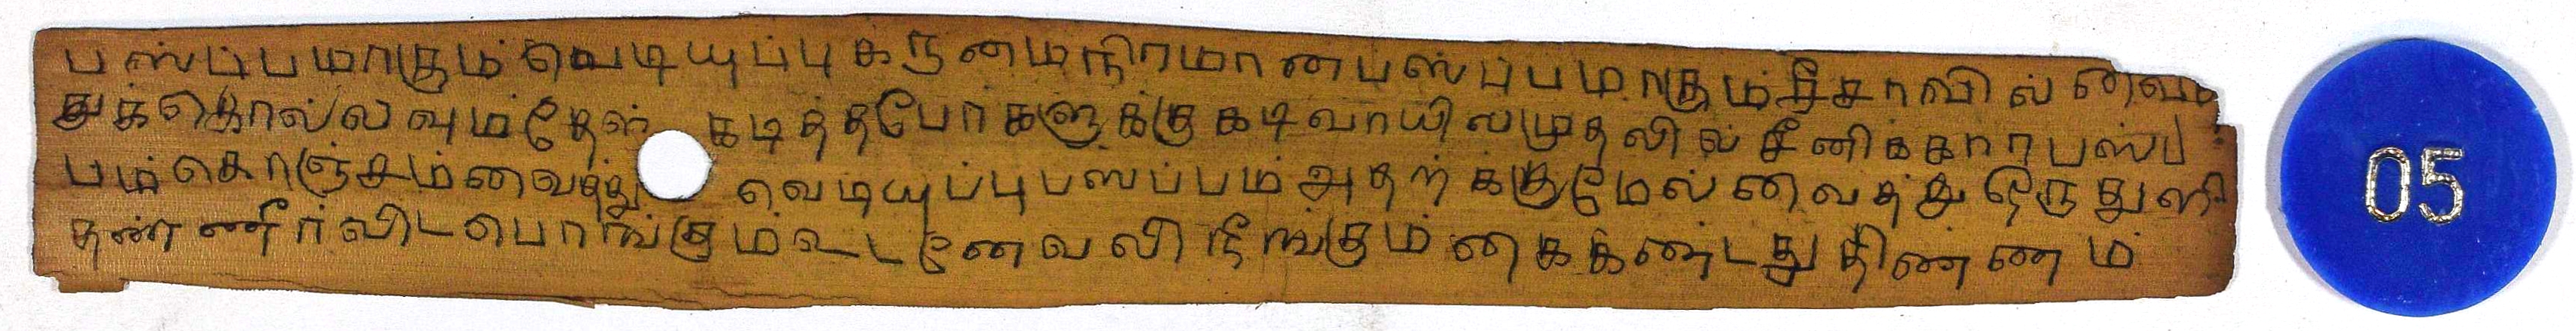 பஸ்ப்பமாகும் வெடியுப்பு கருனமநிரமானபஸ்ப்பமாகும் சீசாவில் வைத
துக்கொல்லவும் தேள் கடித்தபோர்களுக்கு கடிவாயிலமுதலில் சீனிக்காரபஸ்ப்
பம் கொஞ்சம் வைத்து வெடியுப்புபஸப்பம் அதற்க்குமேல் வைத்து ஒருதுளி
தண்ணீர்விடபொங்கும் உடனேவலி நீங்கும் கைகண்டது திண்ணம்
05